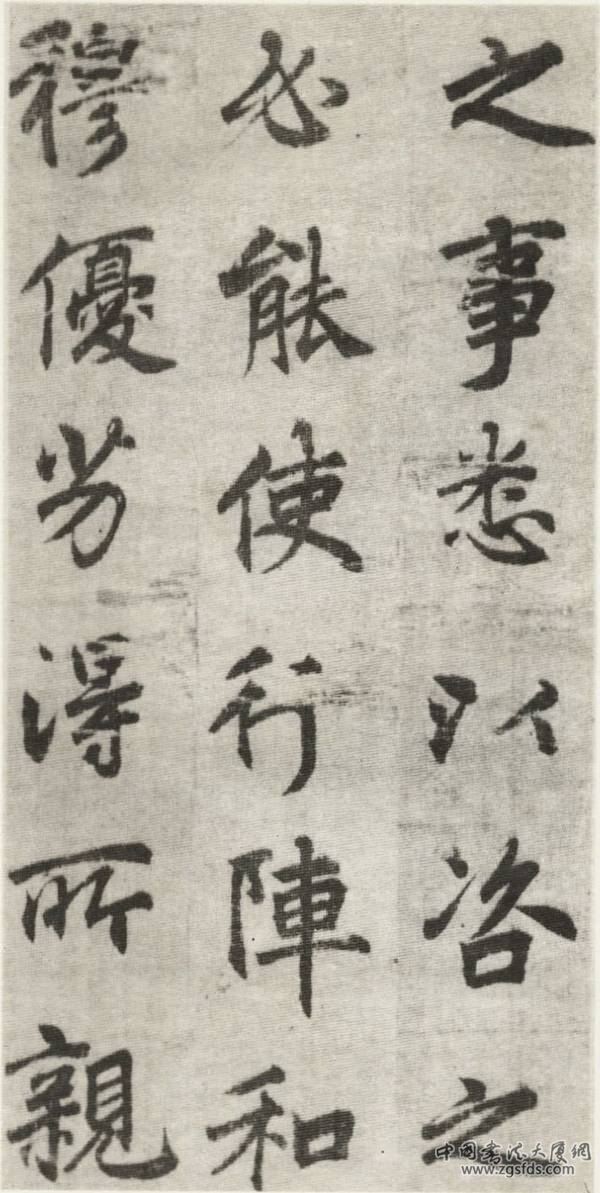 之事悉以咨之
必能使行陣和
穆優劣得所親
中国书法大厦網
www.zgsfds.com